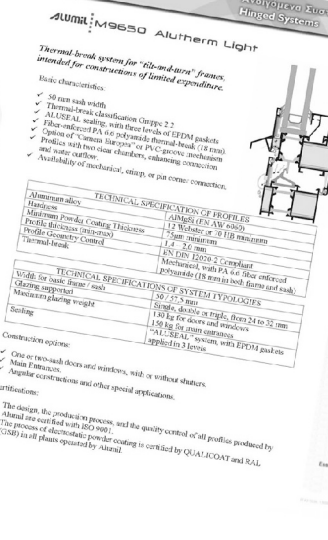 Ανοιγόμενα Συσ
Hinged Systems
ALUMIL M9650 Alutherm Light
Thermal-break system for "tilt-and-turn" frames,
intended for constructions of limited expenditure.
Basic characteristics:
✓ 50 mm sash width
✓ Thermal-break classification Gruppe 2.2
✓ ALUSEAL sealing, with three levels of EPDM gaskets
✓ Fiber-enforced PA 6.6 polyamide thermal-break (18 mm)
✓ Option of "Camera Europea" or PVC-groove mechanism
✓ Profiles with two clear chambers, enhancing connection
and water outflow.
✓ Availability of mechanical, crimp, or pin corner connection.
TECHNICAL SPECIFICATION OF PROFILES
Aluminum alloy AlMgSi (EN AW 6060)
Hardness 12 Webster or 70 HB minimum
Minimum Powder Coating Thickness 75μm minimum
Profile thickness (min-max) 1,4 – 2,0 mm
Profile Geometry Control EN DIN 12020-2 Compliant
Thermal-break Mechanical, with PA 6.6 fiber enforced
polyamide (18 mm in both frame and sash)
TECHNICAL SPECIFICATIONS OF SYSTEM TYPOLOGIES
Width for basic frame / sash 50 / 57,5 mm
Glazing supported Single, double or triple, from 24 to 32 mm
Maximum glazing weight 130 kg for doors and windows
150 kg for main entrances
Sealing "ALUSEAL" system, with EPDM gaskets
applied in 3 levels
Construction options:
✓ One or two-sash doors and windows, with or without shutters.
✓ Main Entrances.
✓ Angular constructions and other special applications.
ertifications:
The design, the production process, and the quality control of all profiles produced by
Alumil are certified with ISO 9001.
The process of electrostatic powder coating is certified by QUALICOAT and RAL
(GSB) in all plants operated by Alumil.